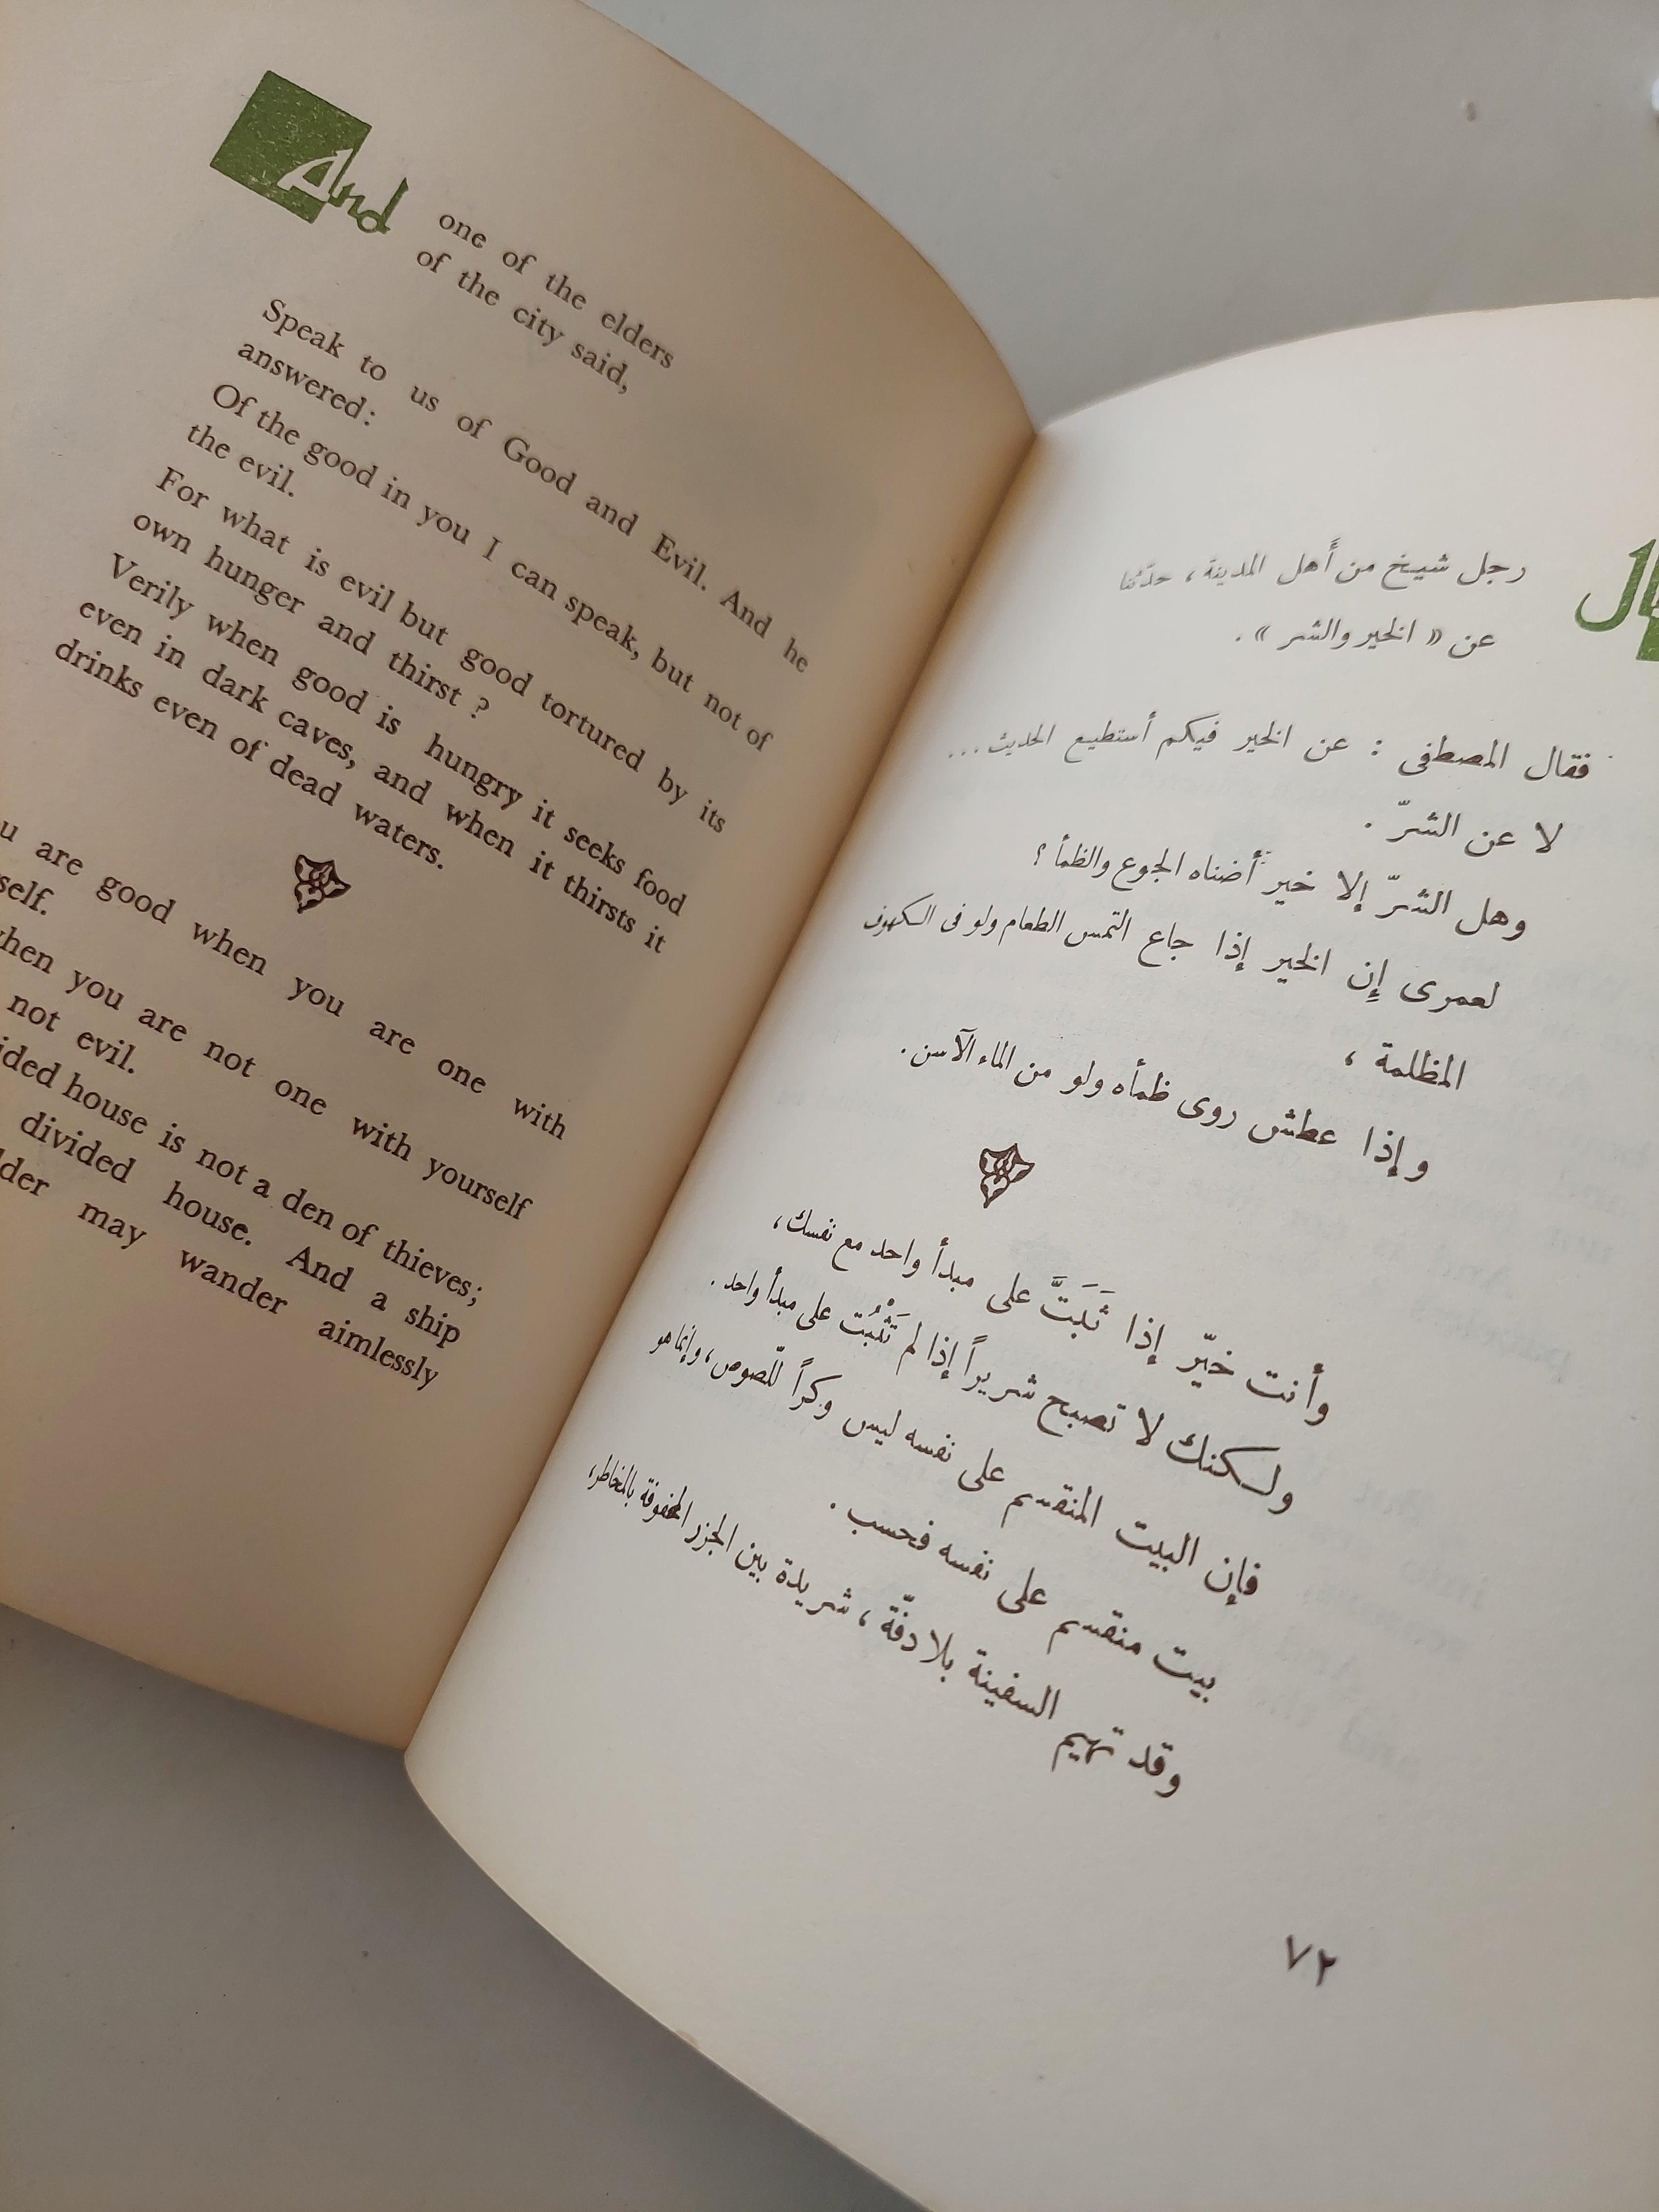 And one of the elders
of the city said,
Speak to us of Good and Evil. And he
answered:
Of the good in you I can speak, but not of
the evil.
For what is evil but good tortured by its
own hunger and thirst ?
Verily when good is hungry it seeks food
even in dark caves, and when it thirsts it
drinks even of dead waters.
are good when you are one with
self.
when you are not one with yourself
not evil.
ided house is not a den of thieves;
divided house. And a ship
der may wander aimlessly
رجل شيخ من أَهل المدينة ، حدّثنا
عن « الخير والشر » .
فقال المصطفى : عن الخير فيكم أستطيع الحديث...
لا عن الشرّ .
وهل الشرّ إلا خير أضناه الجوع والظمأ ؟
لعمرى إِن الخير إذا جاع التمس الطعام ولو فى الكهوف
المظلمة ،
وإذا عطش روى ظمأه ولو من الماء الآسن .
وأنت خيّر إذا ثَبَتَّ على مبدأ واحد مع نفسك ،
ولكنك لا تصبح شريراً إذا لم تَثْبُت على مبدأ واحد .
فإن البيت المنقسم على نفسه ليس وكراً للّصوص ، وإنما هو
بيت منقسم على نفسه فحسب .
وقد تهيم السفينة بلا دفّة ، شريدة بين الجزر المحفوفة بالمخاطر ،
٧٢